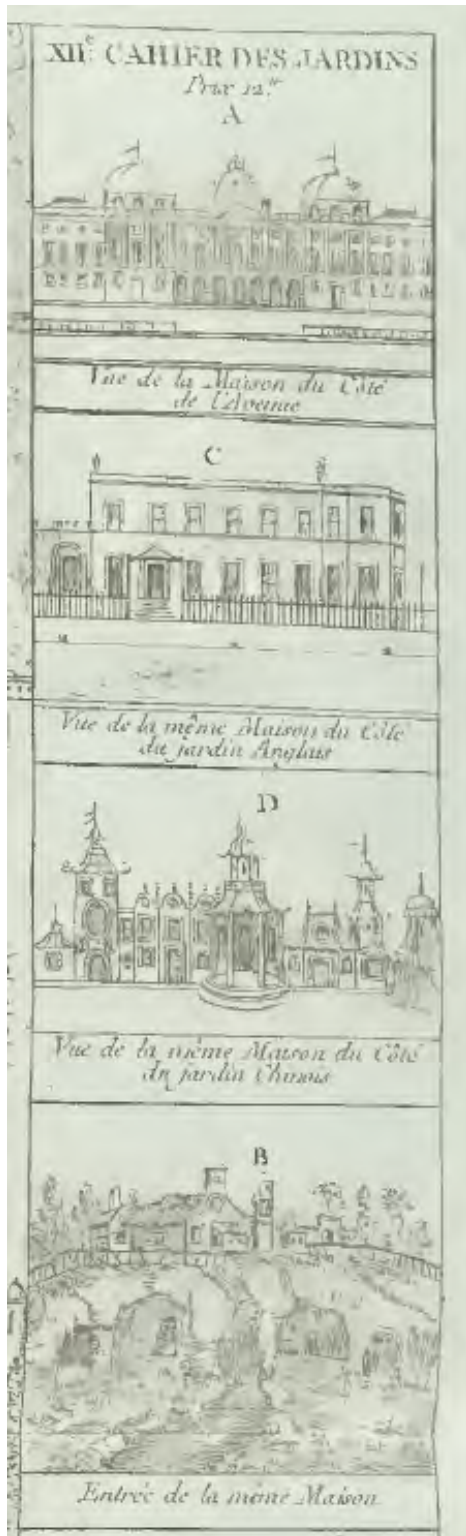 XIIe. CAHIER DES JARDINS
Prix 12.tt
A
Vue de la Maison du Côté
de l'Avenue
C
Vue de la même Maison du Côté
du jardin Anglais
D
Vue de la même Maison du Côté
du jardin Chinois
B
Entrée de la même Maison